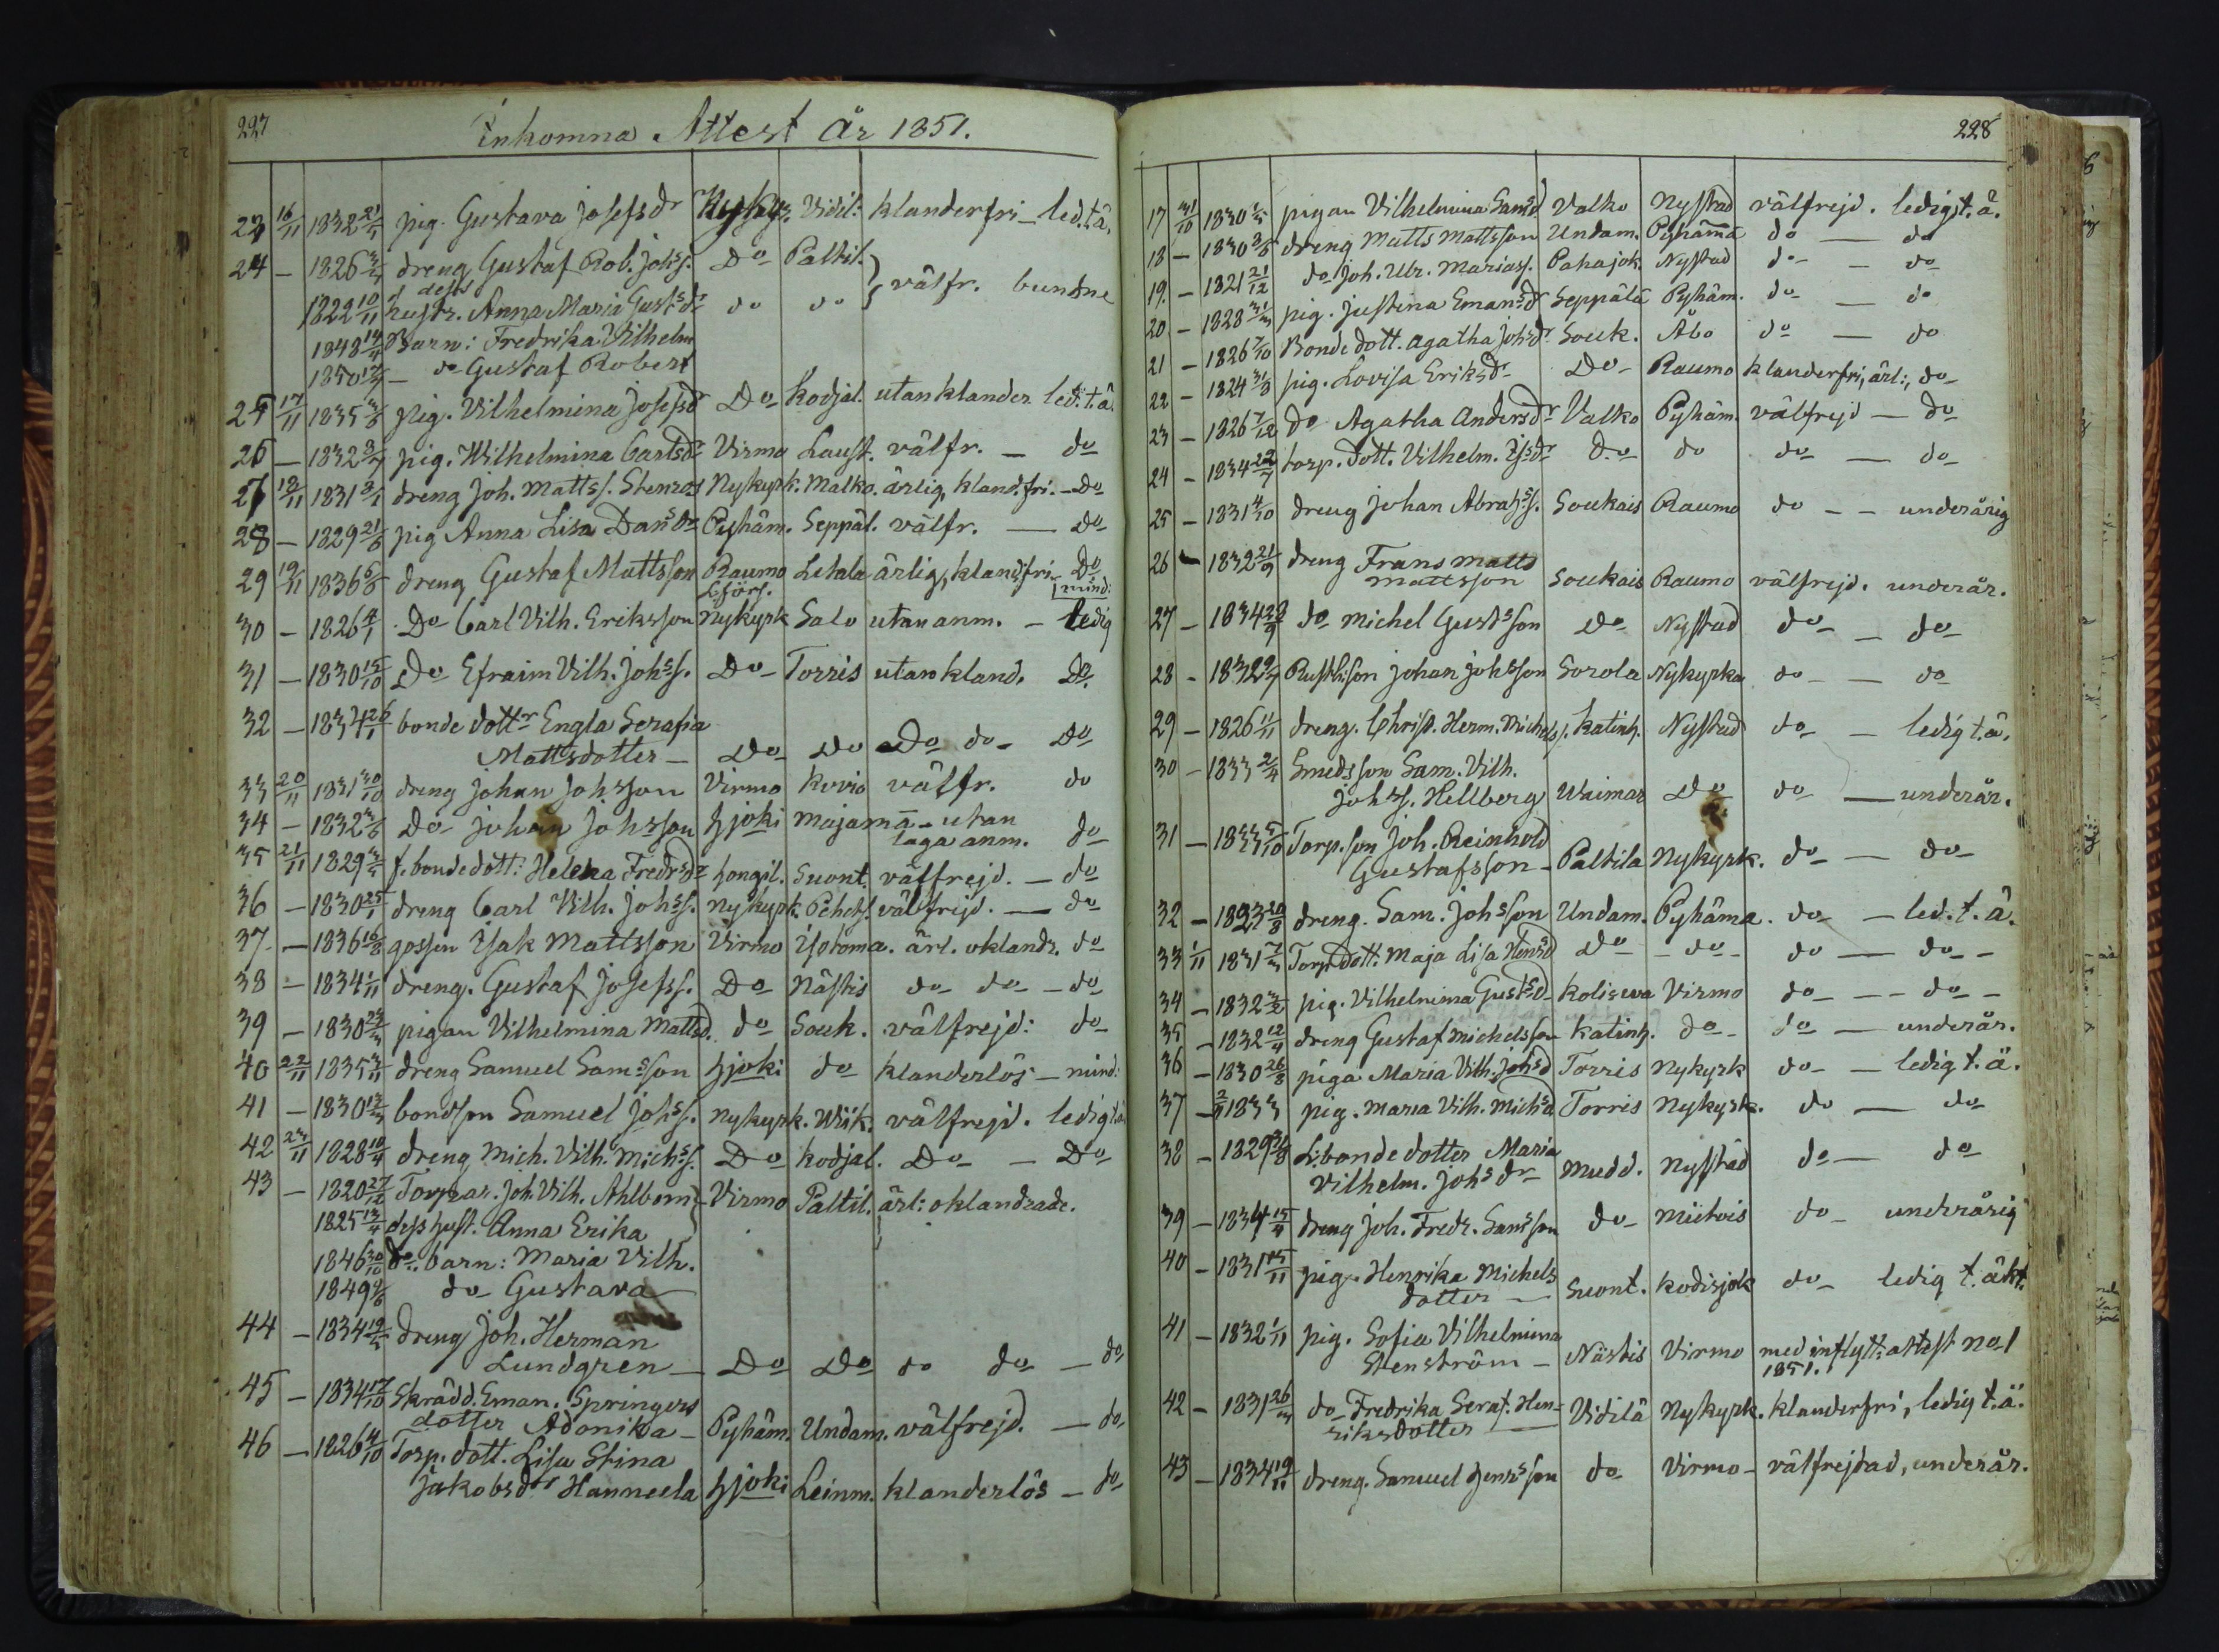 227
Inkomna Attest År 1851.
23 16/11 1832 21/1 pig. Gustava Josefsdr Nykyr. Vidil: klanderfri – led. t. ä.
24 – 1826 dreng Gustaf Rob. Johss. Do Paltil.
d dess
1822 10/11 hustr. Anna Maria Gustsdr do do välfr. bundne
1848 Barn: Fredrika Vilhelm
1850 – do Gustaf Robert
25 17/11 1835 pig. Vilhelmina Josefsdr Do Kodjal. utan klander led. t. ä.
26 – 1832 pig. Wilhelmina Carlsdr Virmo Laust. välfr. – do
27 18/11 1831 dreng Joh. Mattss. Stenros Nykyrk. Malko. ärlig, kland.fri. – Do
28 – 1829 21/6 pig Anna Lisa Dansdr Pyhäm. Seppäl. välfr. – Do
29 19/11 1836 dreng Gustaf Mattsson Raumo Letala ärlig, klandfri – Do
mind:
30 – 1826 4/1 Do Carl Vilh. Eriksson Nykyrk Salo utan anm. – ledig
31 – 1830 15/10 Do Efraim Vilh. Johss. Do – Torris utan kland. Do
32 – 1834 26/1 bonde dottr Engla Serafia
Mattsdotter – Do Do Do do – Do
33 20/11 1831 30/10 dreng Johan Johsson Virmo Kovio välfr. do
34 – 1832 Do Johan Johsson Hjoki Majamä – utan
laga anm. do
35 21/11 1829 f. bondedott: Helena Fredrsdr Hongil. Suont. välfrejd. – do
36 – 1830 25/1 dreng Carl Vilh. Johss. Nykyrk. välfrejd. – do
37 – 1836 16/8 gossen Isak Mattsson Virmo Isotoma. ärl. oklandr. do
38 – 1834 1/11 dreng. Gustaf Josefss. Do Nästis do do – do
39 – 1830 pigan Vilhelmina Mattsd. do Souk. välfrejd: do
40 22/11 1835 3/11 dreng Samuel Samsson Hjoki do klanderlös – mind:
41 – 1830 bondson Samuel Johss. Nykyrk. Wiik. välfrejd. ledig t. ä
42 23/11 1828 10/4 dreng Mich. Vilh. Michss. Do Kodjal. Do – Do
43 – 1820 27/12 Torpar. Joh. Vilh. Ahlbom Virmo Paltil. ärl: oklandrade.
1825 13/4 dess hust. Anna Erika
1846 30/10 do. barn: Maria Vilh.
1849 do Gustava
44 – 1834 dreng Joh. Herman
Lundgren – Do Do do do – do
45 – 1834 17/10 Skrädd. Eman. Springers
dotter Adonika – Pyhäm. Undam. välfrejd. – do
46 – 1826 4/10 Torp. dott. Lisa Stina
Jakobsdr Hanneela Hjoki Leinm. klanderlös – do
228
17 31/10 1830 pigan Vilhelmina Samsd Valko Nystad välfrejd. ledig t. ä.
18 – 1830 dreng Matts Mattsson Undam. Pyhämä do – do
19. – 1821 21/12 do Joh. Ulr. Mariass. Pahajok. Nystad do – do
20 – 1828 31/3 pig. Justina Emansdr Seppälä Pyhäm. do – do
21 – 1826 7/10 Bonde dott. Agatha Johsdr Souk. Åbo do – do
22 – 1824 31/8 pig. Lovisa Eriksdr Do – Raumo klanderfri, ärl:, do
23 – 1826 7/12 Do Agatha Andersdr Valko Pyhäm. välfrejd – do
24 – 1834 22/7 torp. dott. Vilhelm. Do do do – do
25 – 1831 4/10 dreng Johan Abrahss. Soukais Raumo do – – underårig
26 – 1832 21/9 dreng Frans Matts
Mattsson Soukais Raumo välfrejd. underår.
27 – 1834 do Michel Gustsson Do Nystad do – do
28 – 1832 Rusthson Johan Johsson Sorola Nykyrka do – do
29 – 1826 11/11 dreng. Christ. Herm. Michels. Katinh. Nystad do – ledig t. ä.
30 – 1833 2/4 Smedsson Sam. Vilh.
Johss. Hellberg Waimar Do do – underår.
31 – 1833 5/10 Torp. son Joh. Reinhold
Gustafsson – Paltila Nykyrk. do – do
32 – 1833 20/8 dreng. Sam. Johsson Undam. Pyhäma. do – led. t. ä.
33 1/11 1831 7/3 Torp. dott. Maja Lisa Hensd Do – do – do – do –
34 – 1832 pig. Vilhelmina Gustsd Koliswa Virmo do – – do –
35 – 1832 12/4 dreng Gustaf Michelsson Katinh. do – do – underår.
36 – 1830 26/8 piga Maria Vilh. Johsd Torris Nykyrk do – ledig t. ä.
37 – 2/11 1833 pig. Maria Vilh. Michsd Torris Nykyrk. do – do
38 – 1829 31/8 L: bonde dotter Maria
Vilhelm. Johsdr Mudd. Nystad do – do
39 – 1834 15/4 dreng Joh. Fredr. Samsson do – Mietois do – underårig
40 – 1831 15/11 pig. Henrika Michels
dotter – Suont. Kodisjok do – ledig t. äkt.
41 – 1832 1/11 pig. Sofia Vilhelmina
Stenström – Nästis Virmo med inflytt: attest No 1
1851.
42 – 1831 26/3 do Fredrika Seraf. Hen-
riksdotter – Vidilä Nykyrk. klanderfri, ledig t. ä.
43 – 1834 19/11 dreng. Samuel Henrsson do Virmo – välfrejdad, underår.